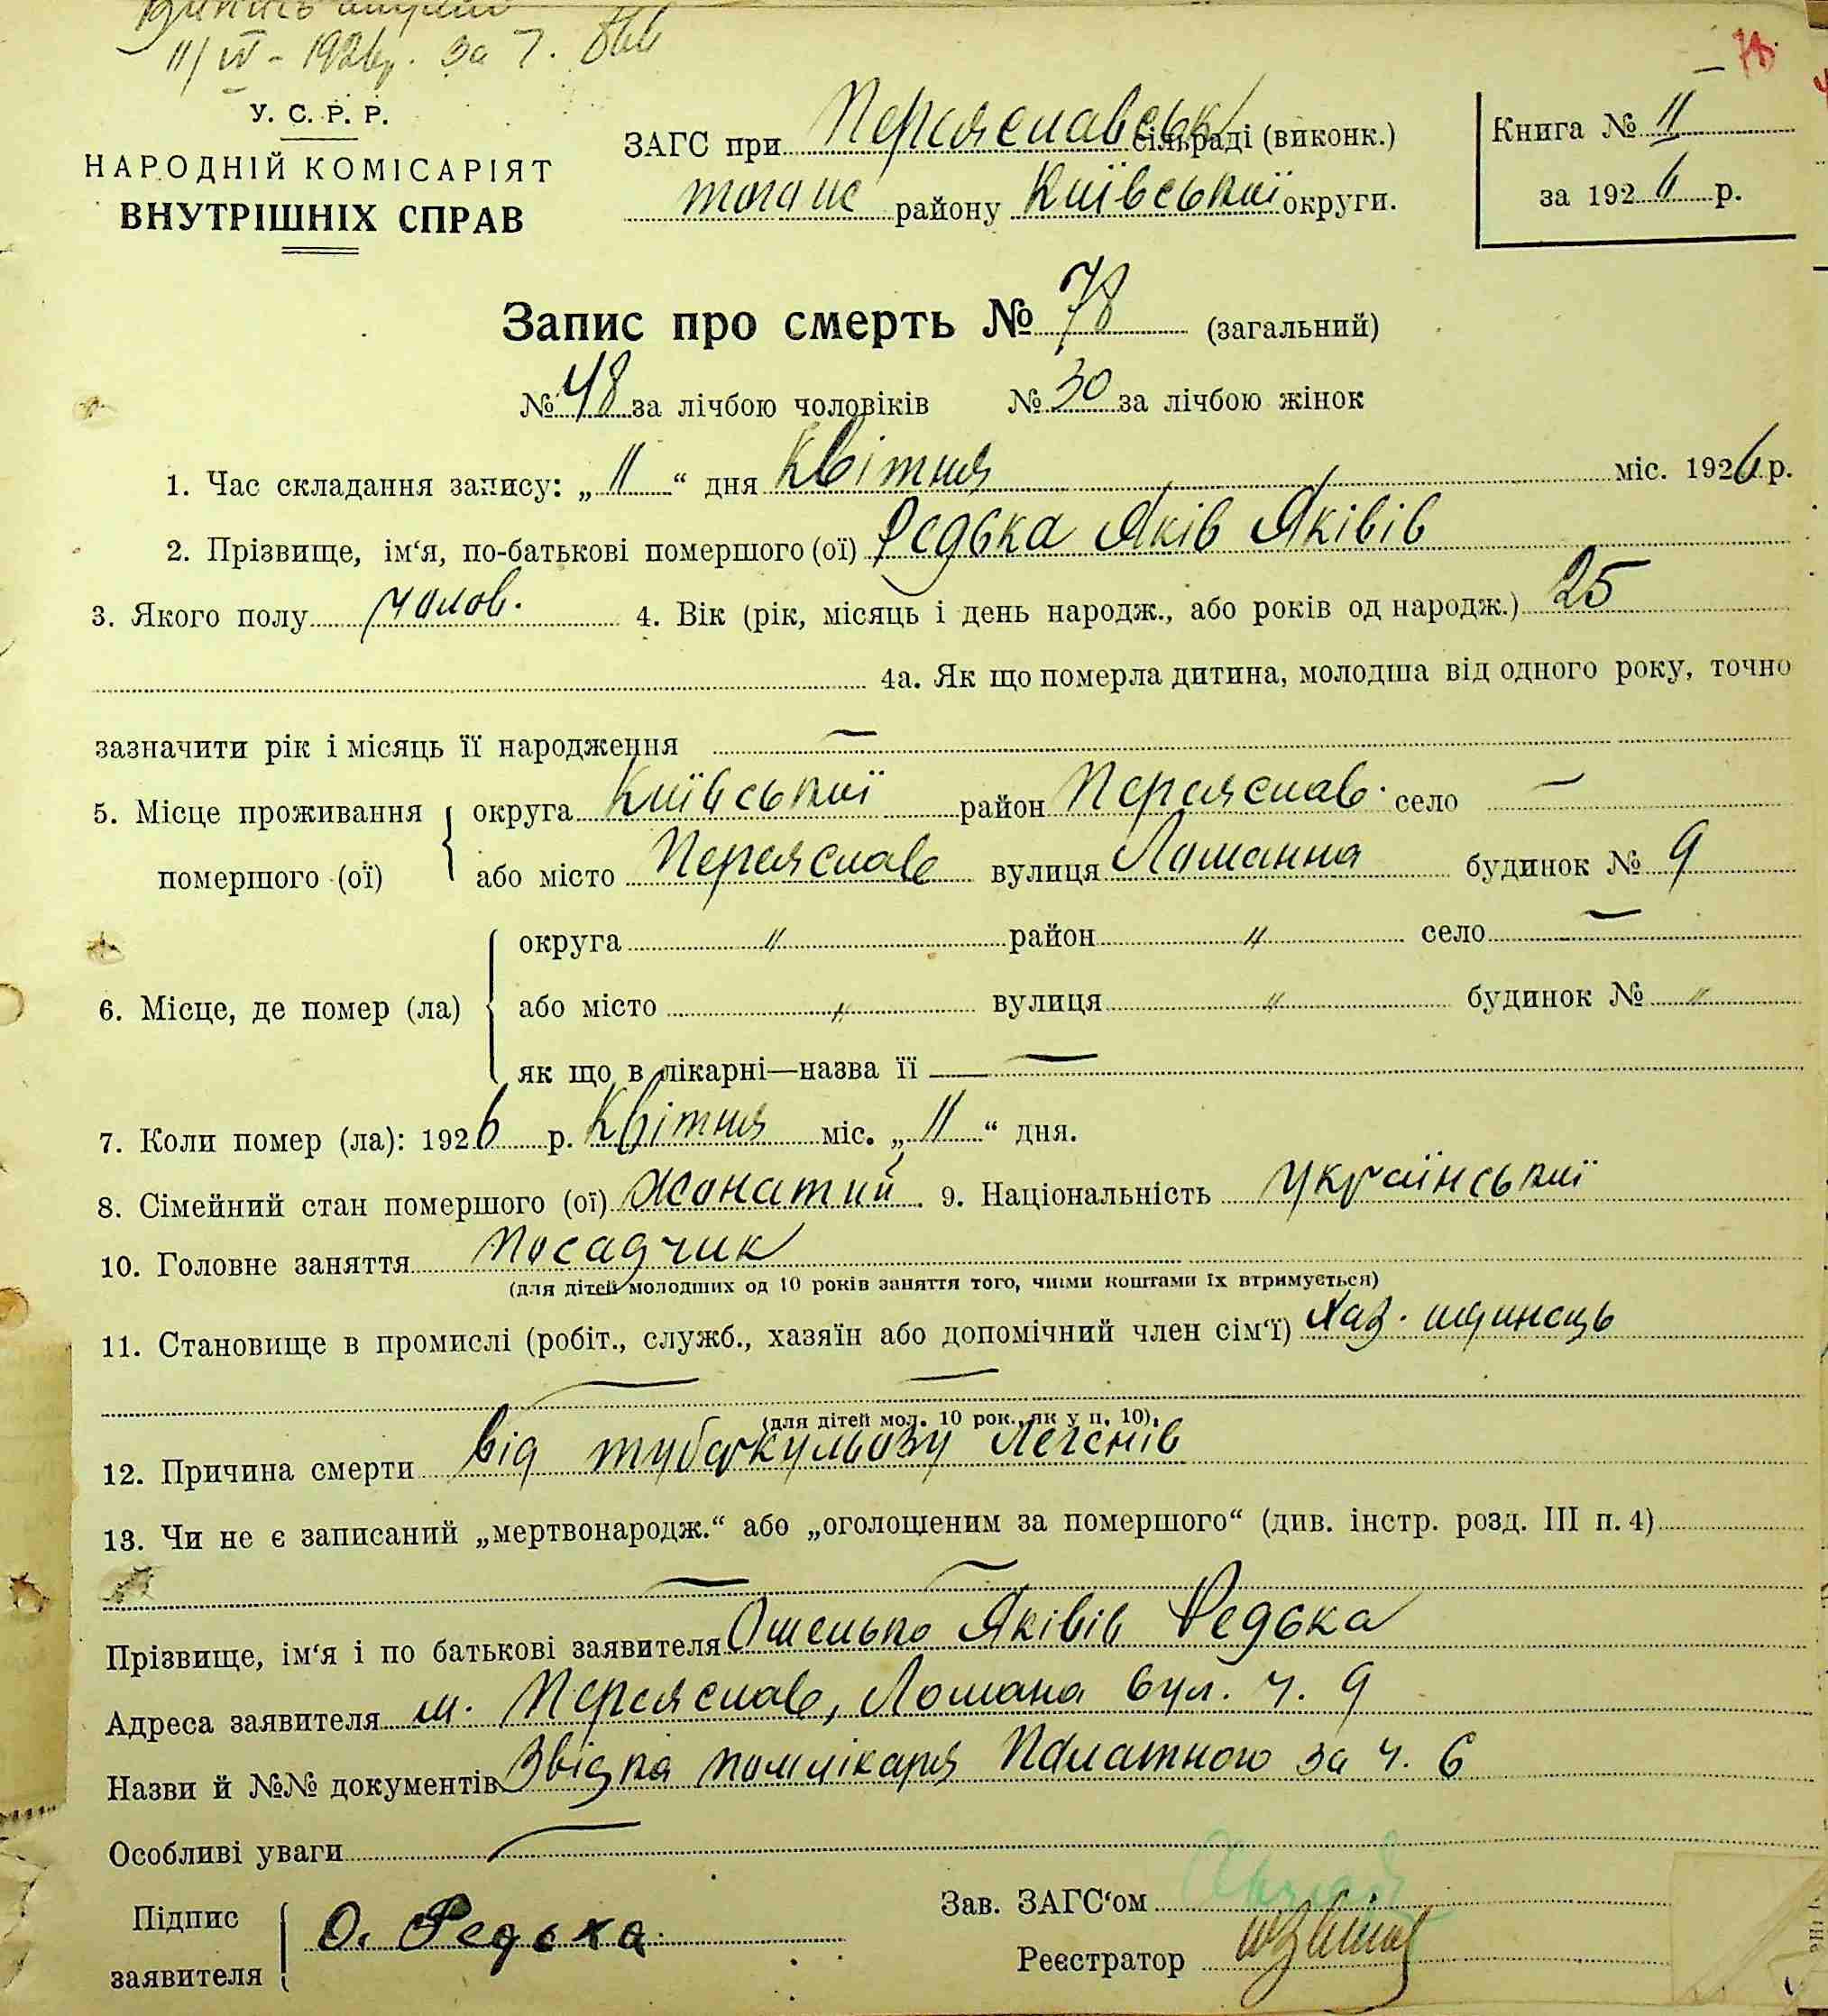 11/IV - 1926р. за ч.
78
У. С. Р. Р.
НАРОДНІЙ КОМІСАРІЯТ
ВНУТРІШНІХ СПРАВ
ЗАГС при Переяславськ. сільраді (виконк.)
тогож району Київської округи.
Книга № II
за 1926 р.
Запис про смерть № 78 (загальний)
№ 48 за лічбою чоловіків № 30 за лічбою жінок
1. Час складання запису: „ 11 “ дня Квітня міс. 1926 р.
2. Прізвище, ім‘я, по-батькові помершого (ої) Редька Яків Яківів
3. Якого полу чолов. 4. Вік (рік, місяць і день народж., або років од народж.) 25
4а. Як що померла дитина, молодша від одного року, точно
зазначити рік і місяць її народження —
5. Місце проживання помершого (ої) округа Київської район Переяслав. село —
або місто Переяслав вулиця будинок № 9
6. Місце, де помер (ла) округа " район " село —
або місто " вулиця " будинок № "
як що в лікарні—назва її —
7. Коли помер (ла): 1926 р. Квітня міс. „ 11 “ дня.
8. Сімейний стан помершого (ої) Жонатий. 9. Національність Української
10. Головне заняття Посадчик
(для дітей молодших од 10 років заняття того, чиїми коштами їх втримується)
11. Становище в промислі (робіт., служб., хазяїн або допомічний член сім‘ї) Хаз. одинець
— —
(для дітей мол. 10 рок., як у п. 10).
12. Причина смерти Від туберкульозу Легенів
13. Чи не є записаний „мертвонародж.“ або „оголошеним за помершого“ (див. інстр. розд. III п. 4)
— —
Прізвище, ім‘я і по батькові заявителя Омелько Яківів Редька
Адреса заявителя м. Переяслав, вул. ч. 9
Назви й №№ документів Звідка помлікаря Палатного за ч. 6
Особливі уваги —
Підпис заявителя О. Редька
Зав. ЗАГС‘ом
Реєстратор